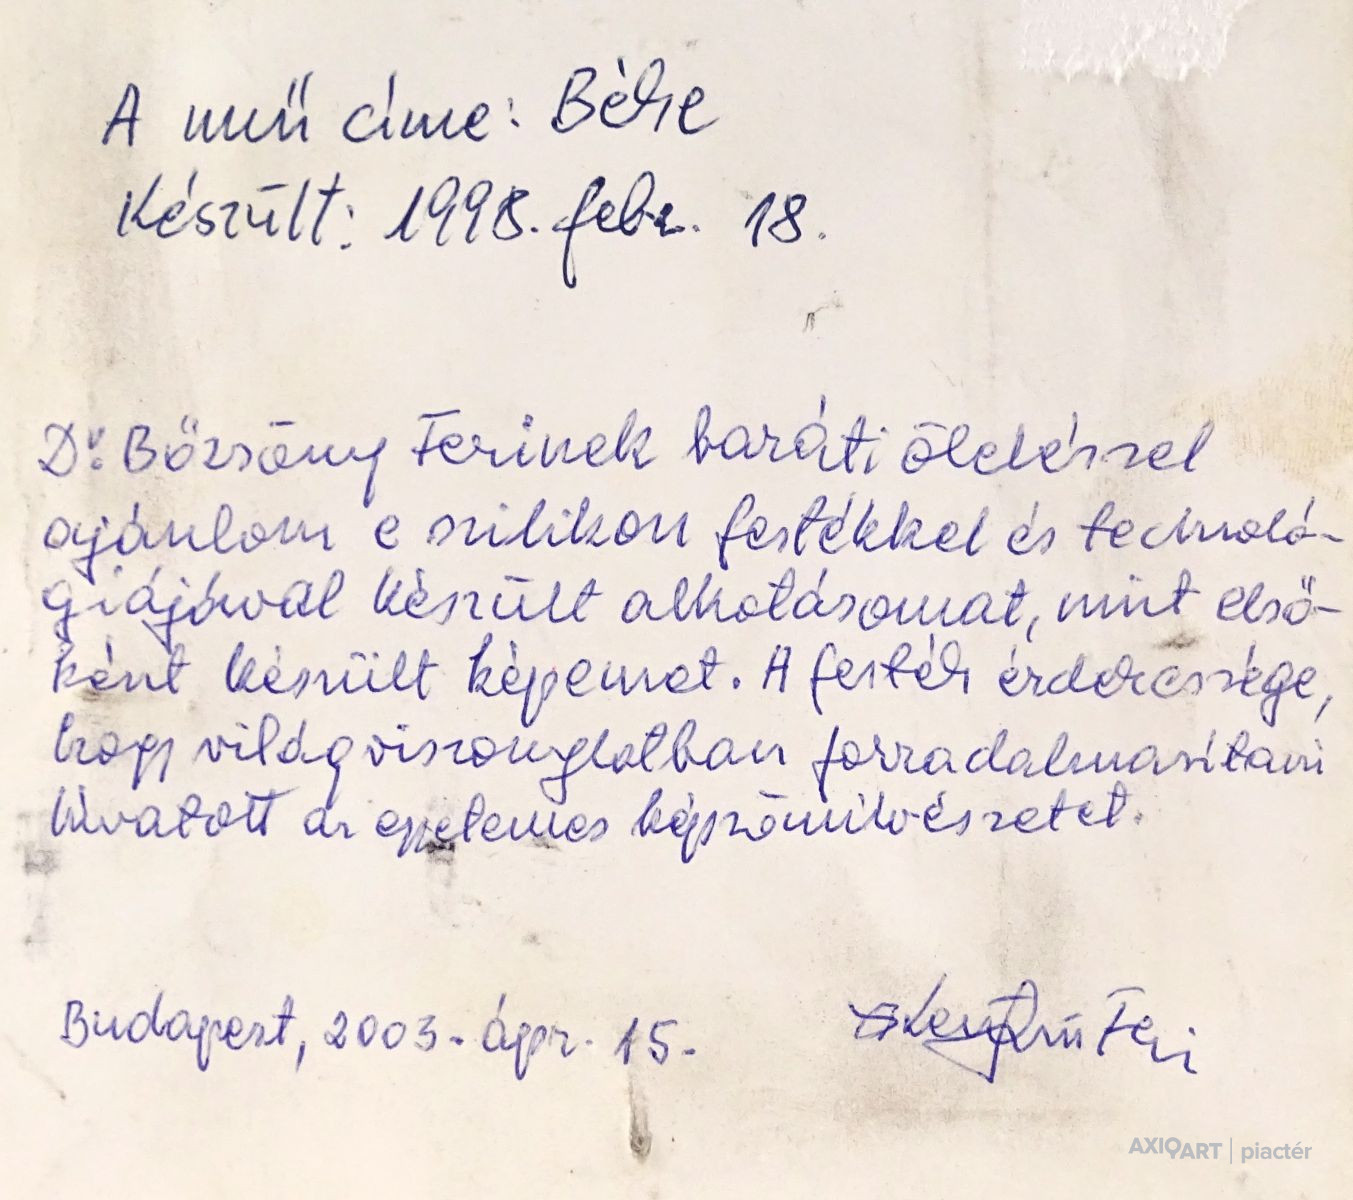 A mű címe: Béke
Készült: 1998. febr. 18.
Dr. Bőzsöny Ferinek baráti öleléssel
ajánlom e szilikon festékkel és technoló-
giájával készült alkotásomat, mint első-
ként készült képemet. A festék érdekessége,
hogy világviszonylatban forradalmasítani
kívatott az egyetemes képzőművészetet.
Budapest, 2003. ápr. 15.
Feri
AXIOART | piactér